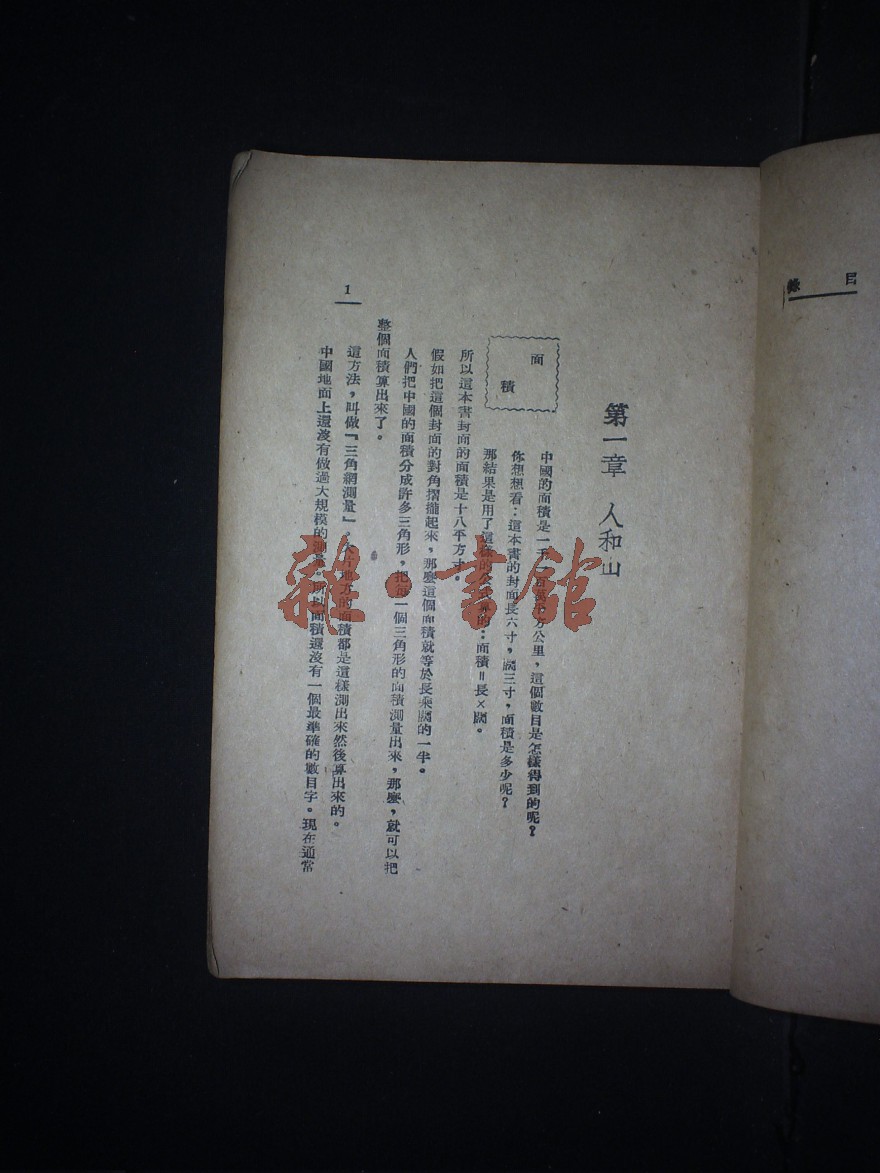 目錄
第一章 人和山
面積
中國的面積是一千一百萬平方公里,這個數目是怎樣得到的呢?
你想想看:這本書的封面長六寸,闊三寸,面積是多少呢?
那結果是用了這樣的公式算的:面積=長×闊。
所以這本書封面的面積是十八平方寸。
假如把這個封面的對角摺攏起來,那麼這個面積就等於長乘闊的一半。
人們把中國的面積分成許多三角形,把每一個三角形的面積測量出來,那麼,就可以把
整個面積算出來了。
這方法,叫做『三角網測量』,大片地方的面積都是這樣測出來然後算出來的。
中國地面上還沒有做過大規模的測量。所以面積還沒有一個最準確的數目字。現在通常
1
雜·書館